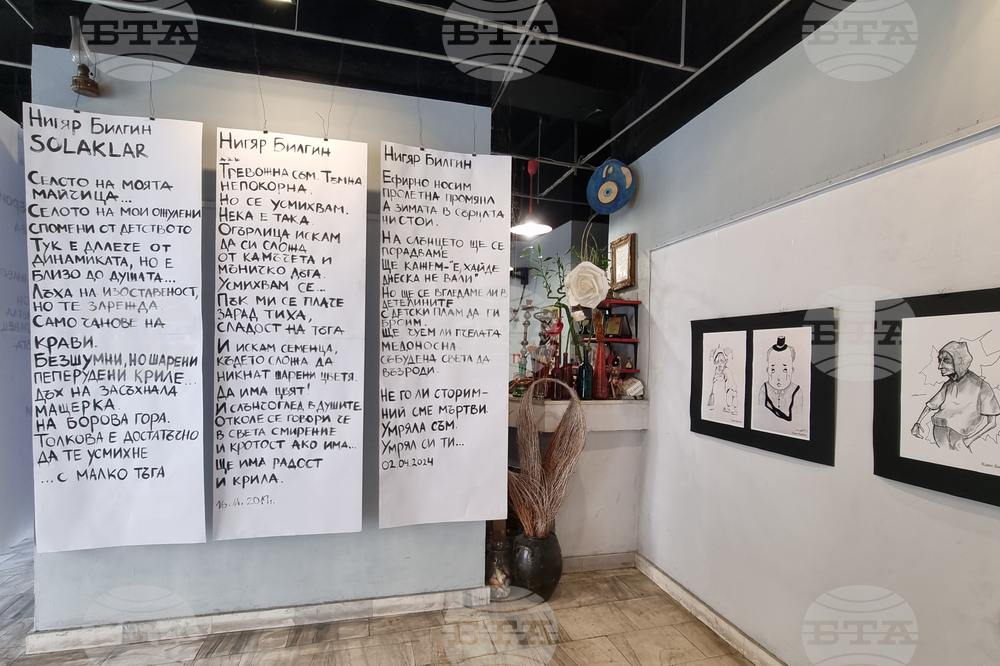 Нигяр Билгин
SOLAKLAR
Селото на моята
майчица...
Селото на мои ошулени
спомени от детството
Тук е далече от
динамиката, но е
близо до душата...
Лъха на изоставеност,
но те зарежда.
Само чанове на
крави.
Безшумни, но шарени
пеперудени криле...
Дъх на засъхнала
мащерка.
на борова гора.
Толкова е достатъчно
да те усмихне
... с малко тъга
Нигяр Билгин
...
Тревожна съм. Тъмна
непокорна.
Но се усмихвам.
Нека е така
Огърлица искам
да си сложа
от камъчета и
мъничко дъга.
Усмихвам се...
Пък ми се плаче
зарад тиха,
сладост на тъга.
И искам семенца,
където сложа да
никнат шарени цветя.
Да има цвят!
И слънсоглед в душите
Отколе се говори че
в света смирение
и кротост ако има...
Ще има радост
и крила.
Нигяр Билгин
Ефирно носим
пролетна промяна
а зимата в сърцата
ни стои.
На слънцето ще се
порадваме
Ще кажем-"Е, хайде
днеска не вали"
Но ще се вгледаме ли в
детелините
с детски плам да ги
броим.
Ще чуем ли пчелата
медоносна
събудена света да
възроди.
Не го ли сторим-
ний сме мъртви.
Умряла съм.
Умрял си ти...
02.04.2024
БТА
БТА
БТА
БТА
БТА
БТА
БТА
БТА
БТА